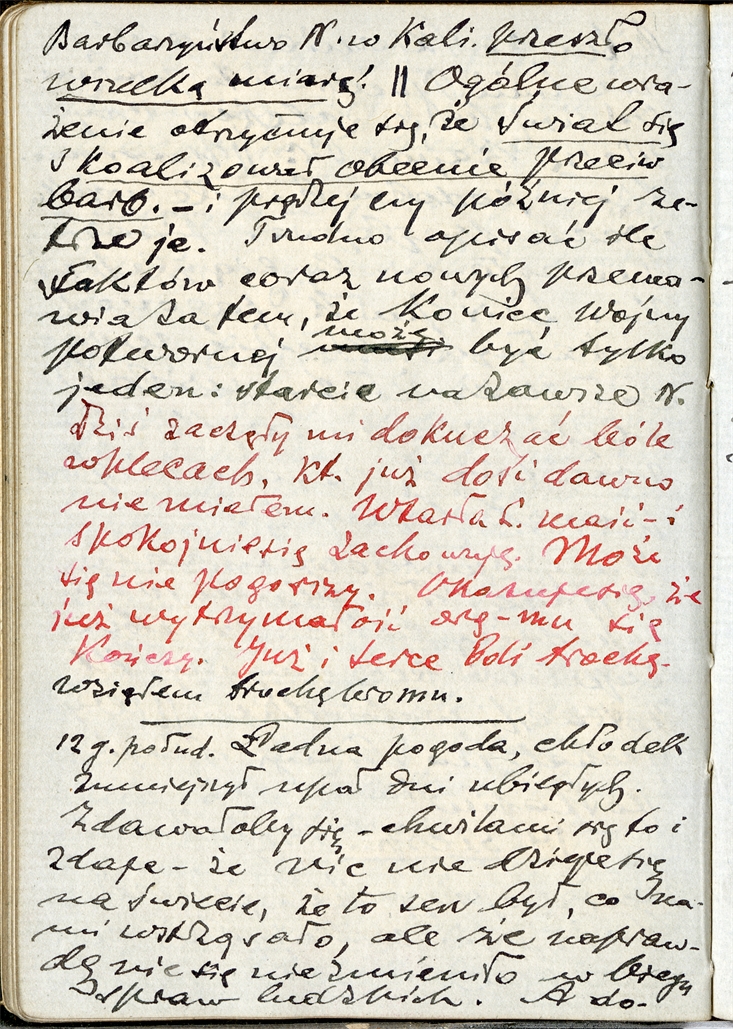 Barbarzyństwo N. w Kali. przeszło
wszelką miarę! || Ogólne wra-
żenie otrzymuje się, że świat się
skoalizował obecnie przeciw
barb. – i prędzej czy później ze-
trze je. Trudno opisać ile
faktów coraz nowych przema-
wia za tem, że koniec wojny
potwornej może być tylko
jeden: starcie na zawsze N.
Dziś zaczęły mi dokuczać bóle
w plecach, kt. już dość dawno
nie miałem. Wtarła L. maść – i
spokojnie się zachowuję. Może
się nie pogorszy. Okazuje się, że
już wytrzymałość org-mu się
kończy. Już i serce boli trochę.
Wziąłem trochę bromu.
12 g. połud. Ładna pogoda, chłodek
zmniejszył upał dni ubiegłych.
Zdawałoby się – chwilami się to i
zdaje – że nic nie dzieje się
na świecie, że to sen był, co na-
mi wstrząsało, ale że napraw-
dę nic się nie zmieniło w biegu
spraw ludzkich. A do-